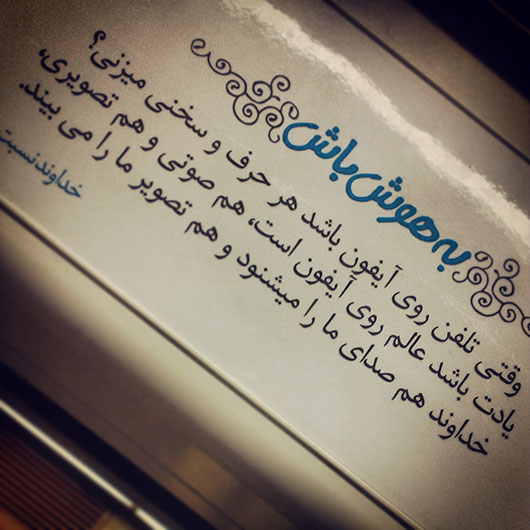 به هوش باش
وقتی تلفن روی آیفون باشد هر حرف و سخنی میزنی؟
یادت باشد عالم روی آیفون است، هم صوتی و هم تصویری،
خداوند هم صدای ما را میشنود و هم تصویر ما را می بیند.
خداوند نسبت